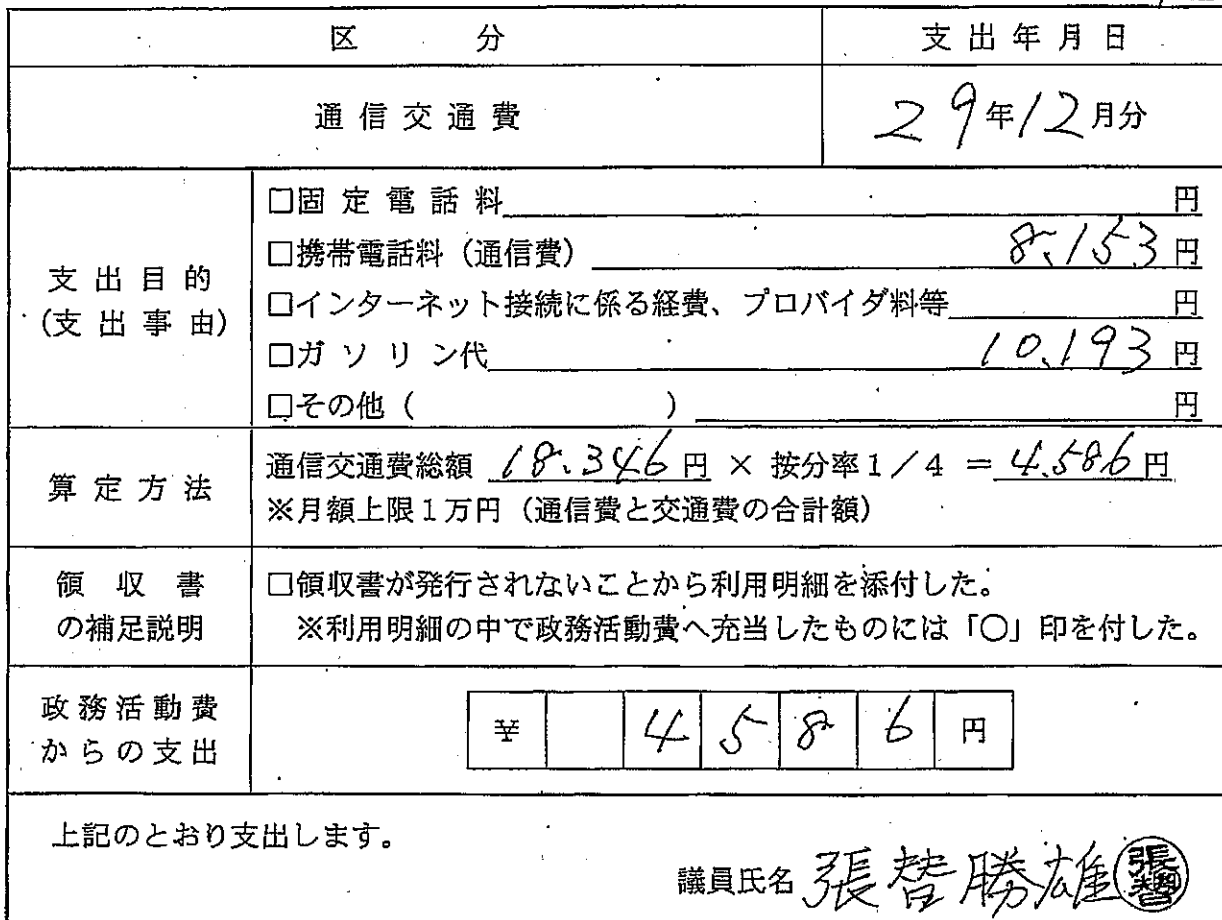 区 分 支出年月日
通信交通費 29年12月分
支出目的
(支出事由)
□固定電話料 円
□携帯電話料（通信費） 8,153円
□インターネット接続に係る経費、プロバイダ料等 円
□ガソリン代 10,193円
□その他（ ） 円
算定方法
通信交通費総額 18,346円 × 按分率1／4 ＝ 4,586円
※月額上限1万円（通信費と交通費の合計額）
領収書
の補足説明
□領収書が発行されないことから利用明細を添付した。
※利用明細の中で政務活動費へ充当したものには「○」印を付した。
政務活動費
からの支出
￥ 4 5 8 6 円
上記のとおり支出します。
議員氏名 張替勝雄 張替